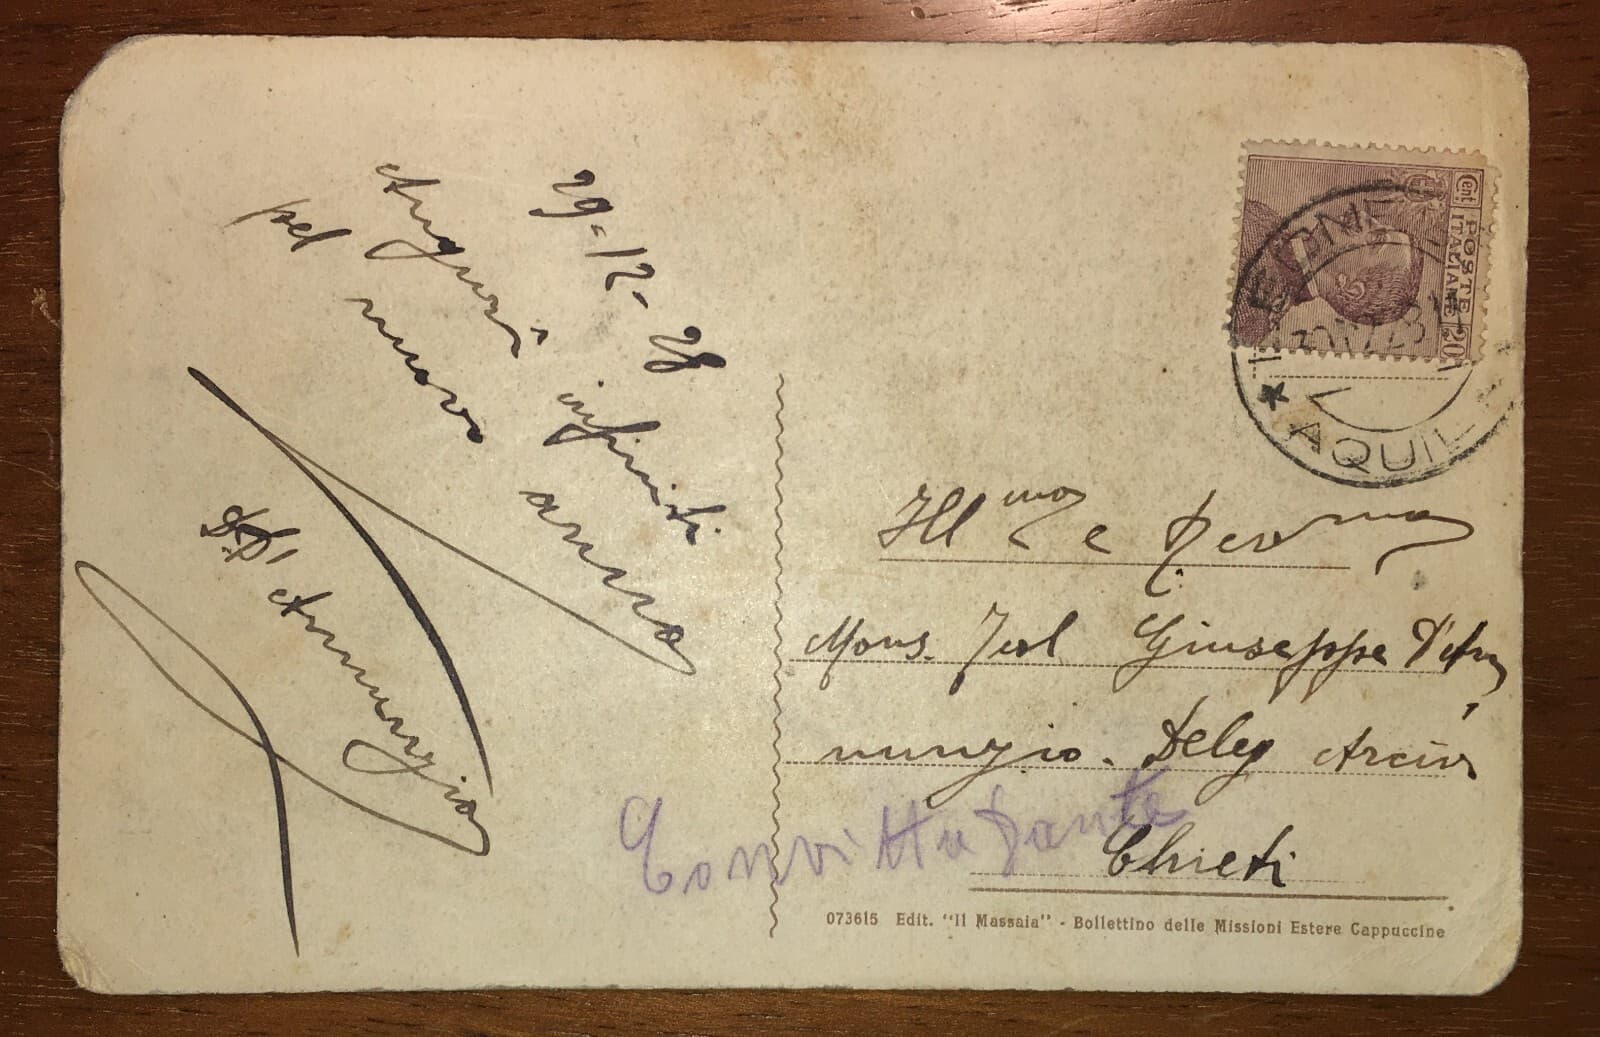 29-12-28
Auguri infiniti
pel nuovo anno
D. D'Annunzio
Cent. 20
POSTE
ITALIANE
AQUIL
Ill mo e Rev mo
Mons. Teol Giuseppe D'An
nunzio. Deleg Arciv
Convitto Dante
Chieti
073615 Edit. "Il Massaia" - Bollettino delle Missioni Estere Cappuccine